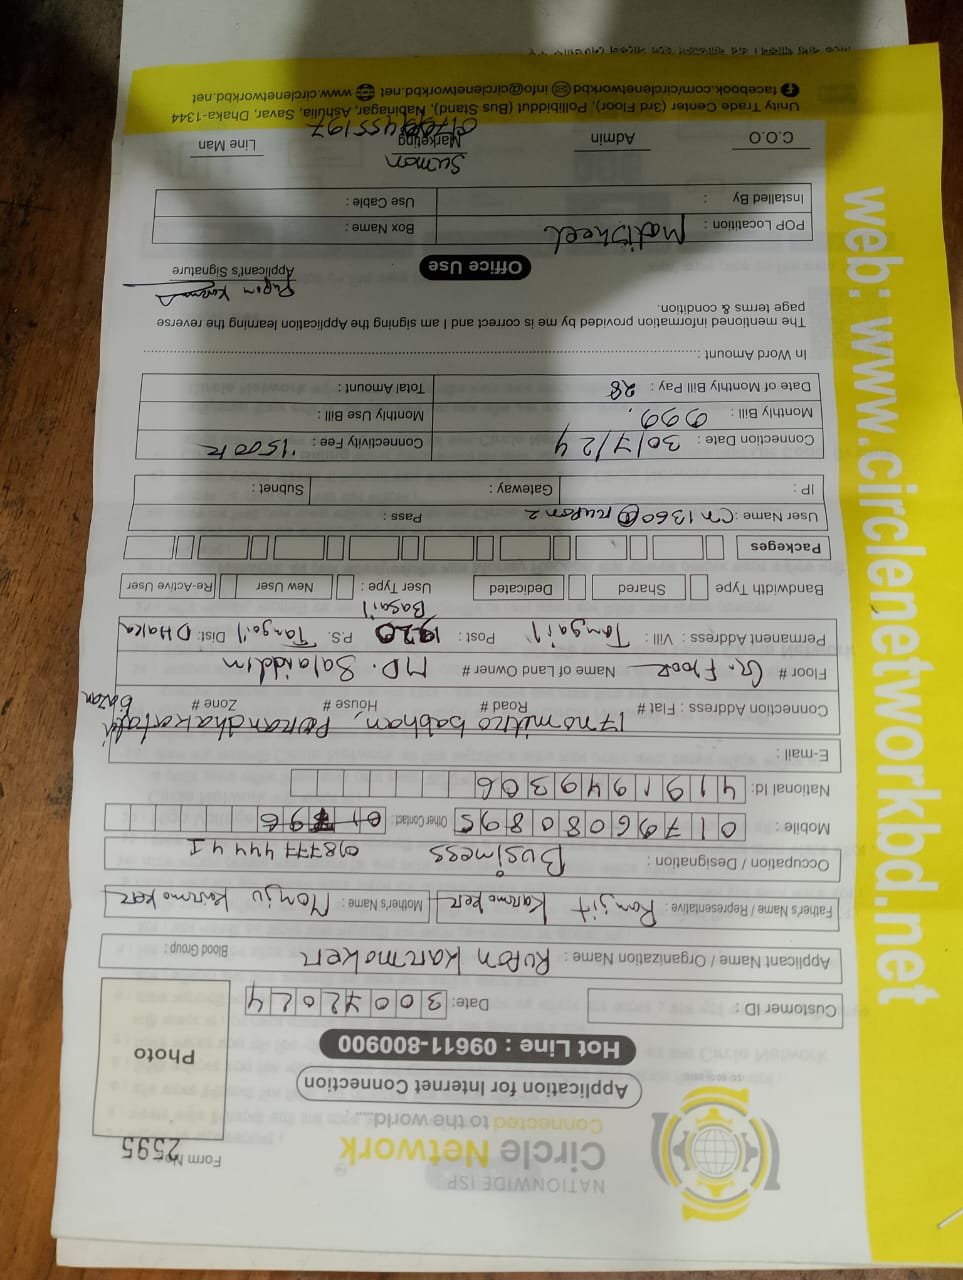 Form No. 2595
NATIONWIDE ISP
Circle Network
Connected to the world....
ISO 9001:2015
Application for Internet Connection
Hot Line : 09611-800900
Photo
Customer ID :
Date: 3 0 0 7 2 0 2 4
Applicant Name / Organization Name : Rupon karmoker
Blood Group :
Father's Name / Representative : Ronjit Karmoker
Mother's Name : Monju karmoker
Occupation / Designation : Business 01877 444 41
Mobile : 0 1 7 9 6 0 8 0 8 9 5
Other Contact:
National Id: 4 1 9 1 9 4 9 9 3 0 6
E-mail :
Connection Address : Flat # Road # House # Zone #
17 no mitro babhan, bazar
Floor # Gr. Floor Name of Land Owner # MD. Salaiddin
Permanent Address : Vill : Tangail Post : 1920 P.S. Tangail Dist: DHaka
Basail
Bandwidth Type Shared Dedicated User Type : New User Re-Active User
Packeges
User Name : Cn1360@rupon2 Pass :
IP : Gateway : Subnet :
Connection Date : 30/7/24 Connectivity Fee : 1500 tk
Monthly Bill : 999. Monthly Use Bill :
Date of Monthly Bill Pay : 28 Total Amount :
In Word Amount :
The mentioned information provided by me is correct and I am signing the Application learning the reverse
page terms & condition.
Rupon Karmoker
Applicant's Signature
Office Use
POP Locatition : Motijheel Box Name :
Installed By : Use Cable :
Sumon
C.O.O Admin Marketing Line Man
Unity Trade Center (3rd Floor), Pollibiddut (Bus Stand), Nabinagar, Ashulia, Savar, Dhaka-1344
facebook.com/circlenetworkbd info@circlenetworkbd.net www.circlenetworkbd.net
web: www.circlenetworkbd.net